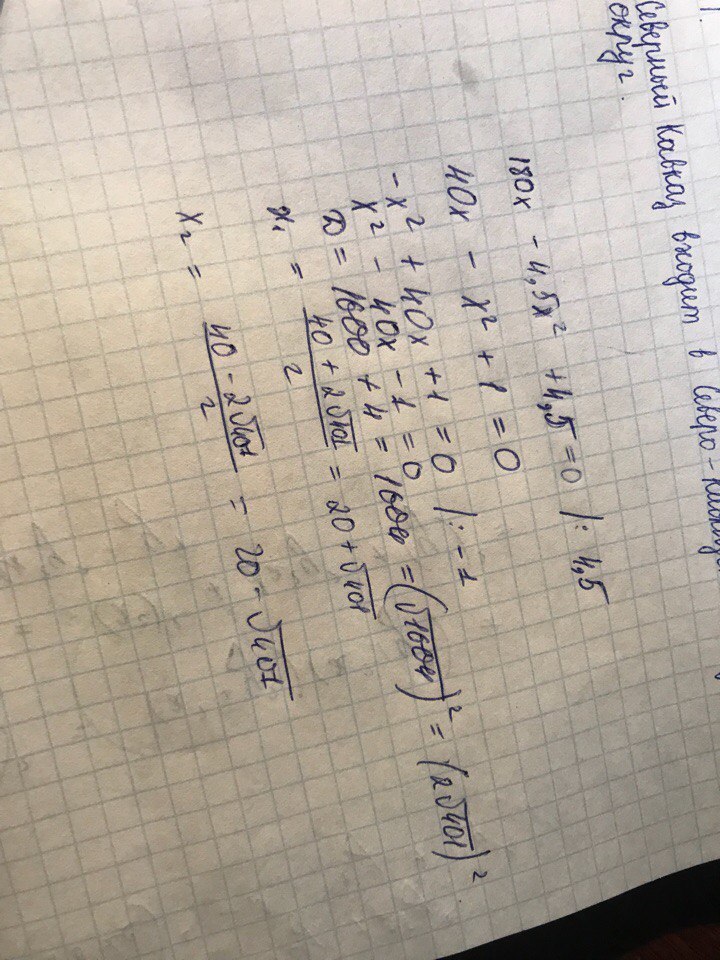 1.
Северный Кавказ входит в Северо-
округ.
180x - 4,5x² + 4,5 = 0 | : 4,5
40x - x² + 1 = 0
-x² + 40x + 1 = 0 | : -1
x² - 40x - 1 = 0
D = 1600 + 4 = 1604 = (√1604)² = (2√401)²
x₁ = (40 + 2√401)/2 = 20 + √401
x₂ = (40 - 2√401)/2 = 20 - √401